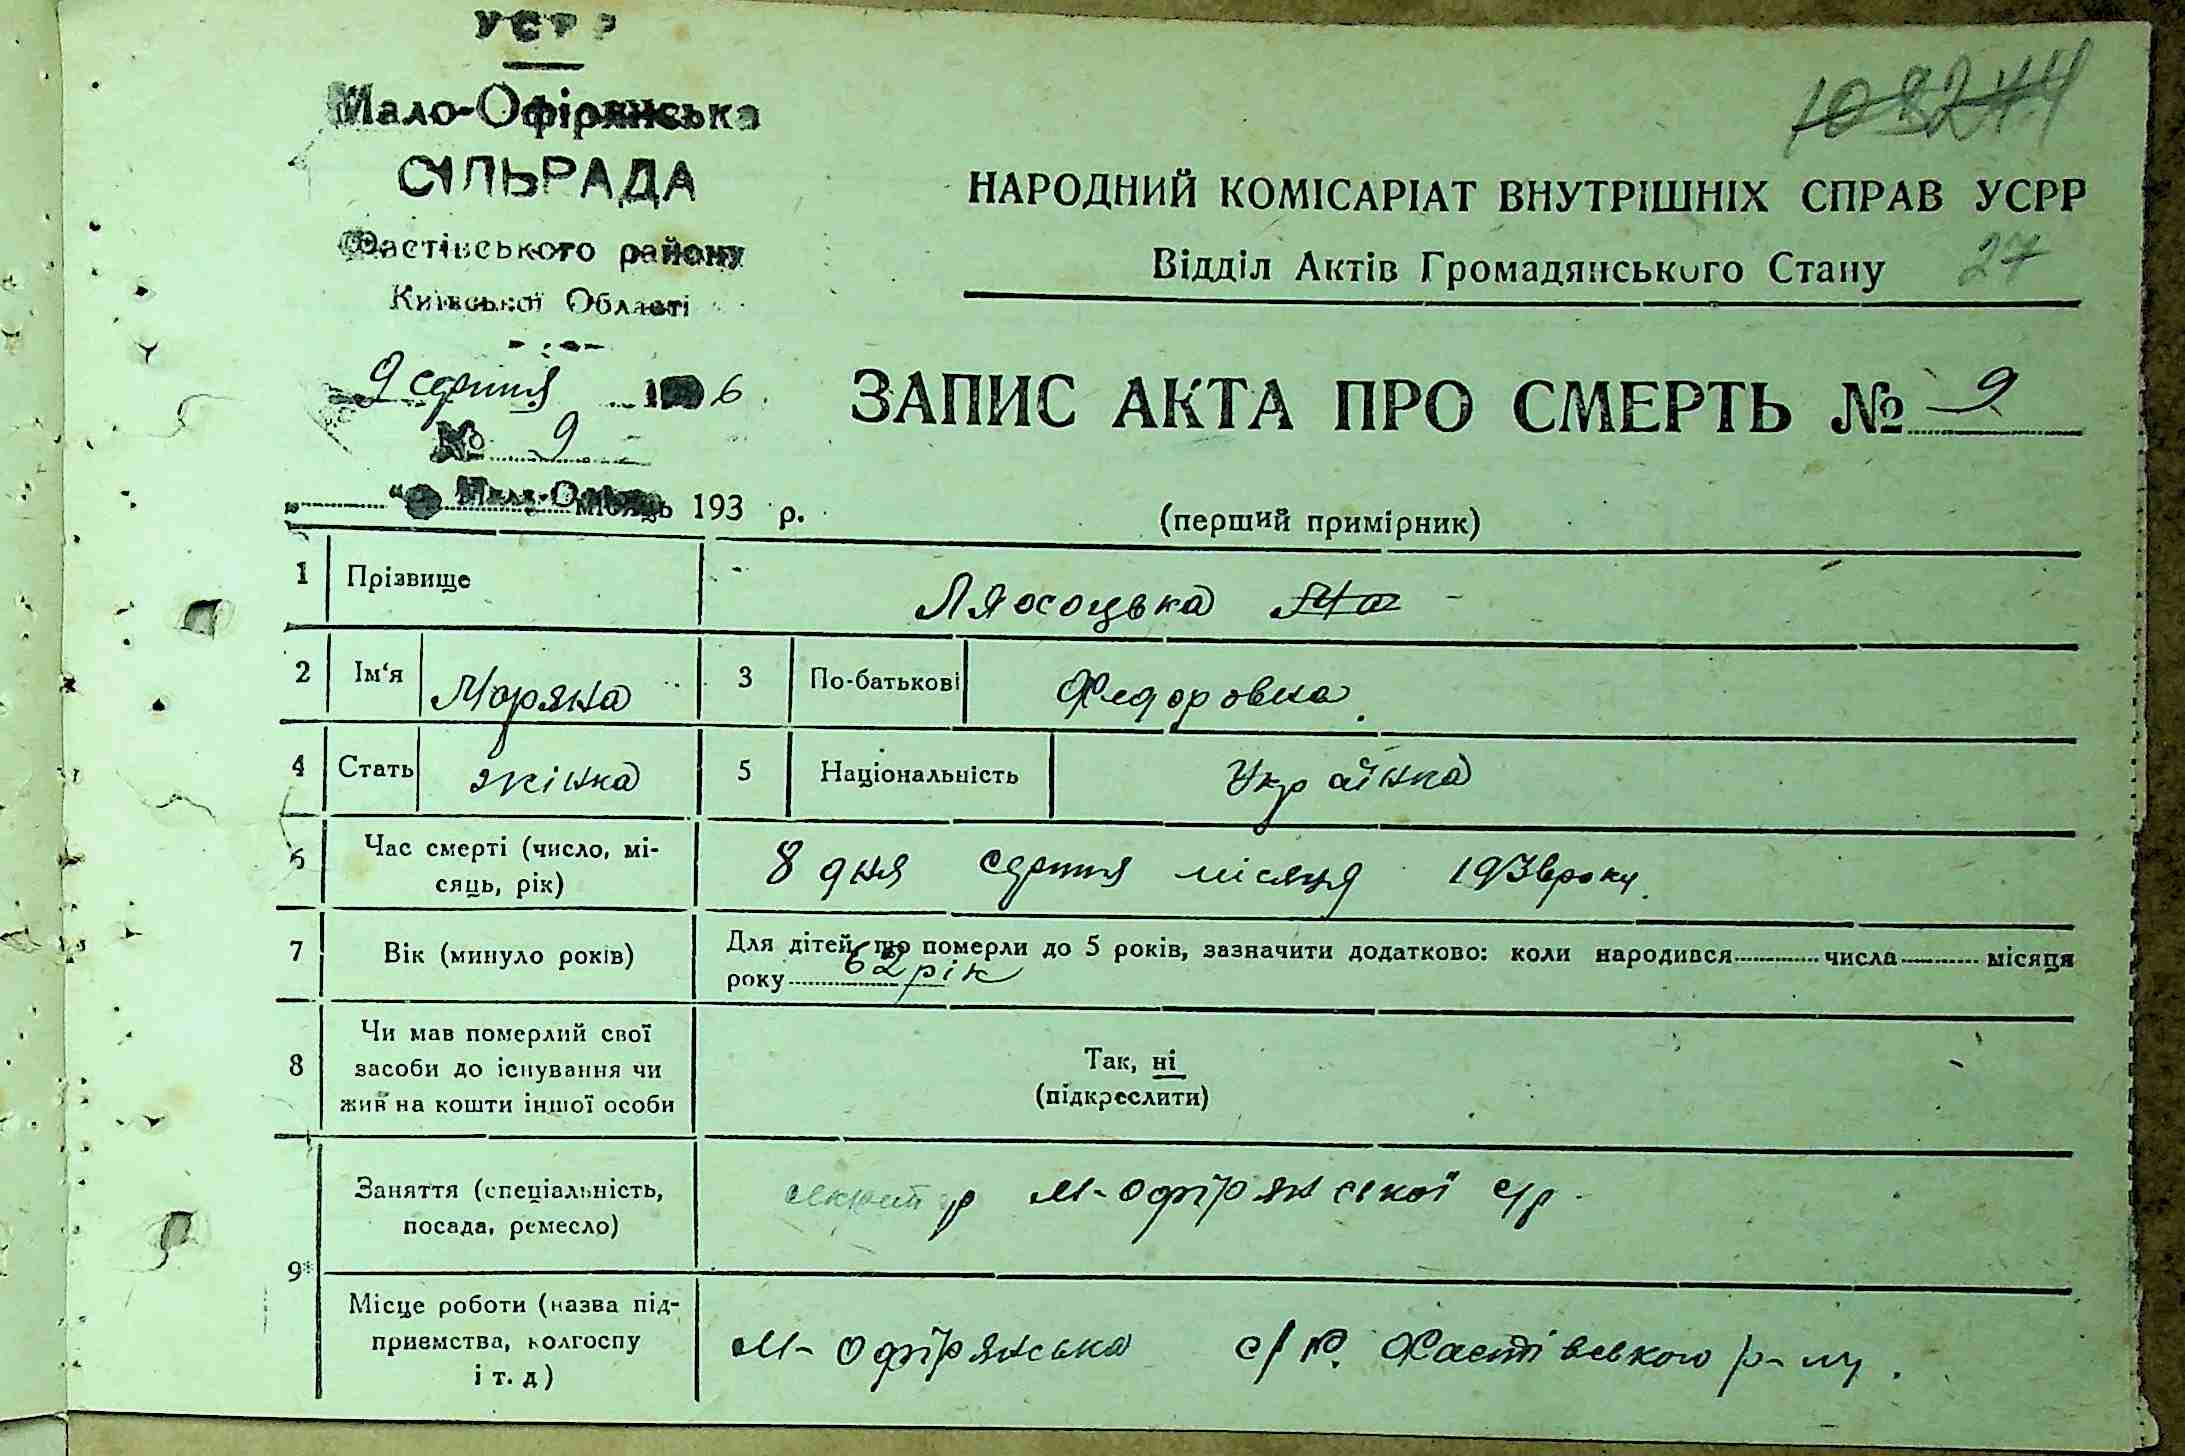 УСРР
Мало-Офірянська
СІЛЬРАДА
Фастівського району
Київської Області
9 серпня 1936
№ 9
108244
НАРОДНИЙ КОМІСАРІАТ ВНУТРІШНІХ СПРАВ УСРР
Відділ Актів Громадянського Стану 27
ЗАПИС АКТА ПРО СМЕРТЬ № 9
"
місяць 193 р.
(перший примірник)
1 Прізвище Лясоцька
2 Ім'я Моряна 3 По-батькові Федоровна
4 Стать жінка 5 Національність Українка
6 Час смерті (число, мі-
сяць, рік) 8 дня серпня місяця 1936 року.
7 Вік (минуло років) Для дітей, що померли до 5 років, зазначити додатково: коли народився числа місяця
року 62 рік
8 Чи мав померлий свої
засоби до існування чи
жив на кошти іншої особи
Так, ні
(підкреслити)
9* Заняття (спеціальність,
посада, ремесло) м-офірянської с/р.
Місце роботи (назва під-
приємства, колгоспу
і т. д)
м-офірянська с/р. Фастівського р-ну.